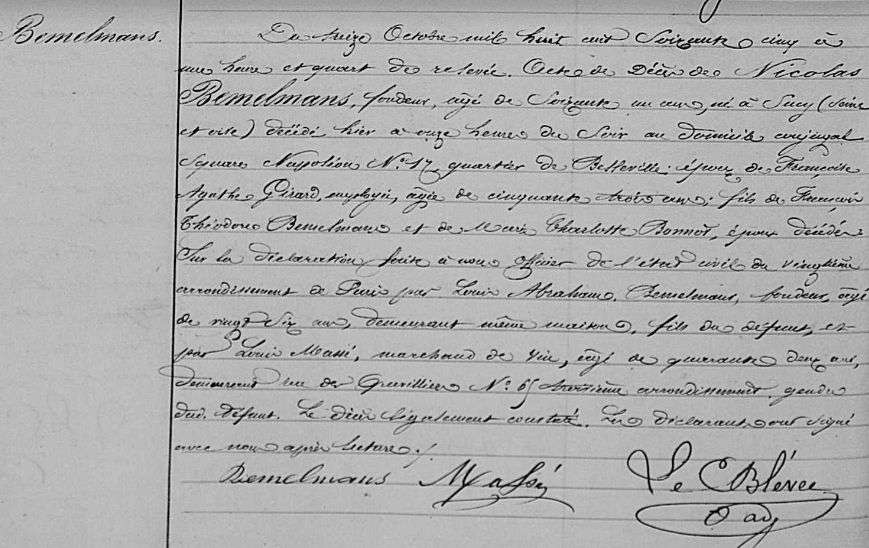 Bemelmans.
Du seize Octobre mil huit cent Soixante cinq à
une heure et quart de relevée. Acte de Décès de Nicolas
Bemelmans, fondeur, âgé de Soixante un ans, né à Sucy (Seine
et oise) décédé hier à onze heures du Soir au domicile conjugal
Square Napoléon No. 17 quartier de Belleville; époux de Françoise
Agathe Girard, employée, âgée de cinquante trois ans; fils de François
Théodore Bemelmans et de Marie Charlotte Bonnot, époux décédés.
Sur la déclaration faite à nous officier de l'état civil du vingtième
arrondissement de Paris par Louis Abraham Bemelmans, fondeur, âgé
de vingt six ans, demeurant même maison, fils du défunt, et
par Louis Massé, marchand de vin, âgé de quarante deux ans,
demeurant rue des Gravilliers No. 65 troisième arrondissement, gendre
dud. défunt. Le décès légalement constaté. Les déclarants ont signé
avec nous après lecture ./.
Bemelmans Massé Le Blévec
adj